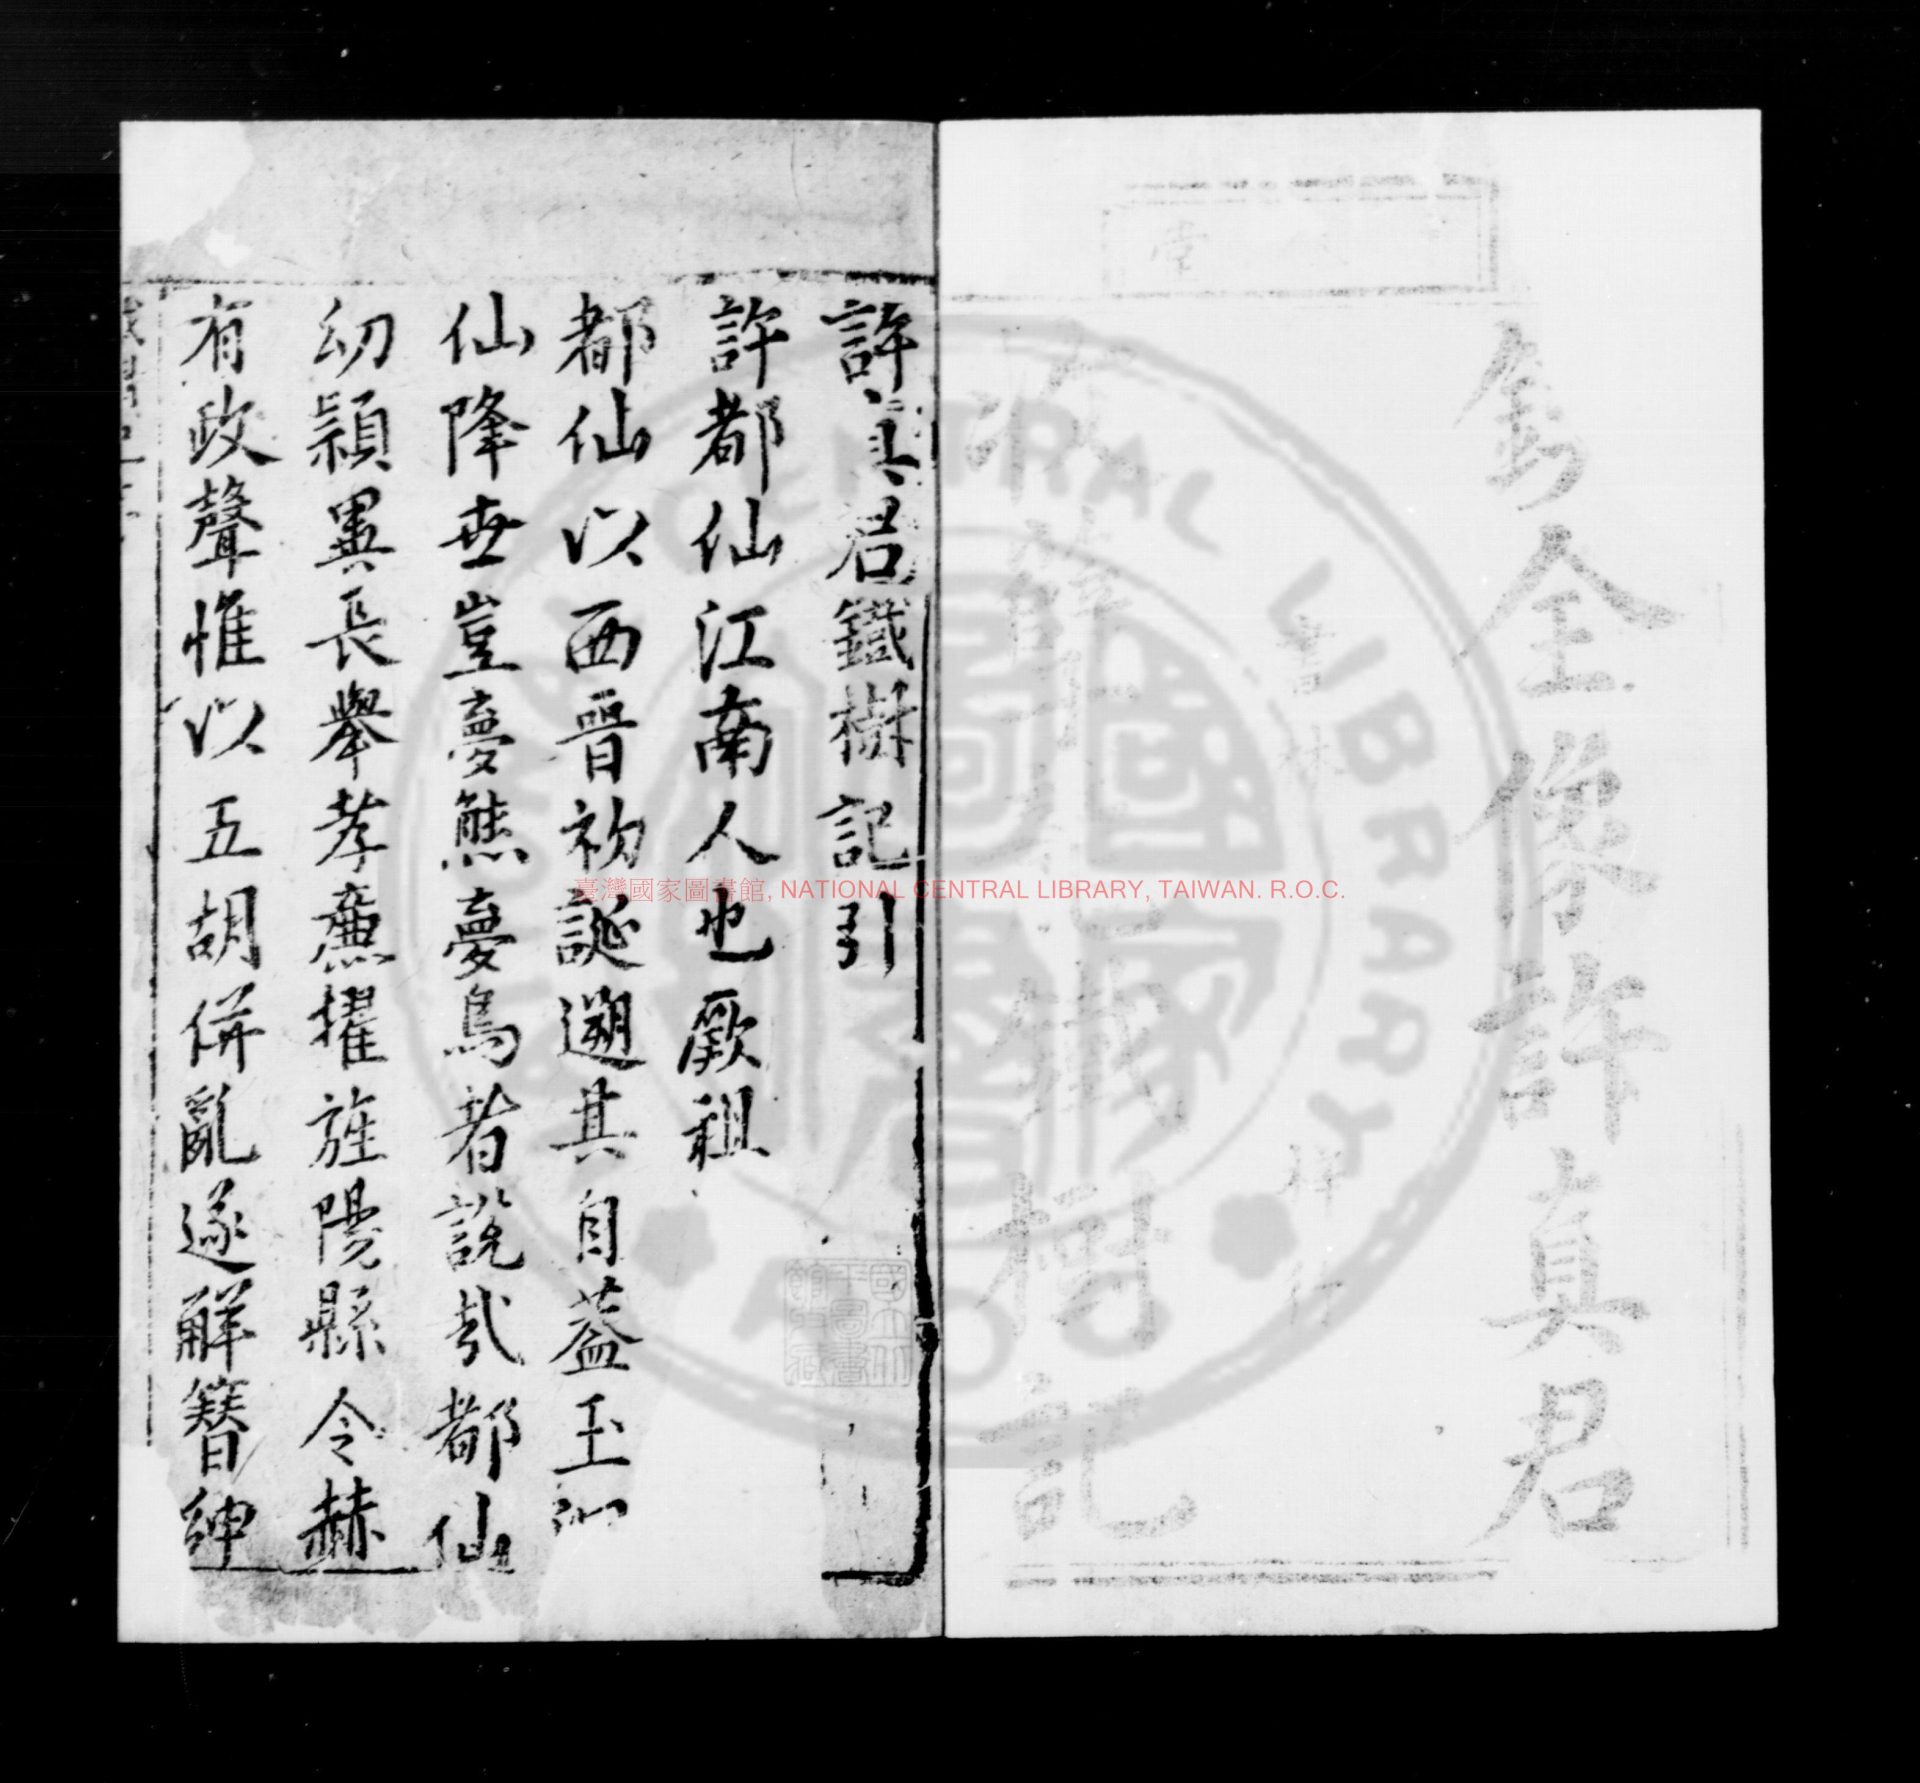 全像許真君
樹記
書林
梓行
許真君鐵樹記引
許都仙江南人也厥祖
都仙以西晉初誕遡其自蓋玉
仙降世豈夢熊夢鳥者說㢤都仙
幼穎異長舉孝廉擢旌陽縣令赫
有政聲惟以五胡倂亂遂解簪紳
臺灣國家圖書館, NATIONAL CENTRAL LIBRARY, TAIWAN. R.O.C.
CENTRAL LIBRARY
R.O.C.